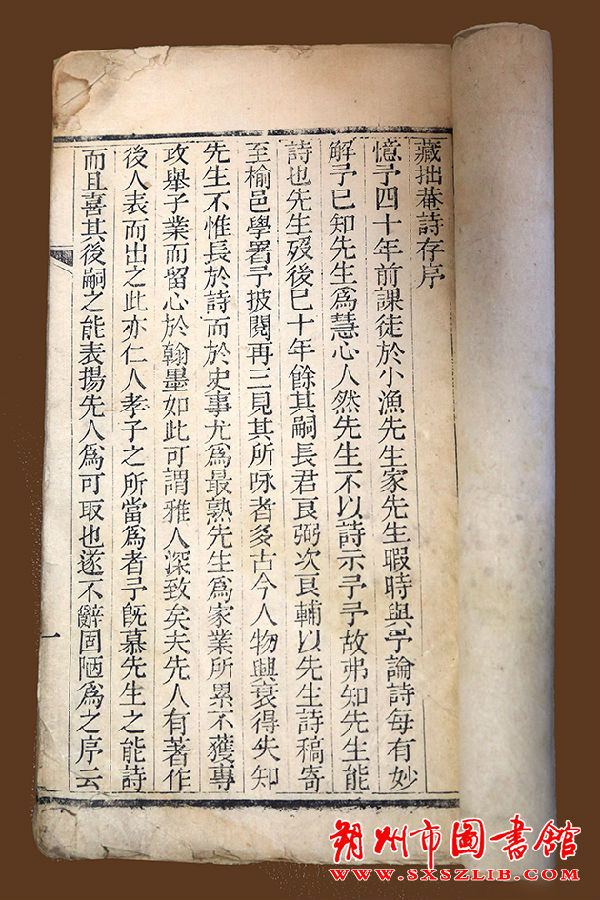 藏拙菴詩存序
憶予四十年前課徒於小漁先生家先生暇時與予論詩每有妙
解予已知先生爲慧心人然先生不以詩示予予故弗知先生能
詩也先生歿後已十年餘其嗣長君良弼次良輔以先生詩稿寄
至榆邑學署予披閱再三見其所咏者多古今人物興衰得失知
先生不惟長於詩而於史事尤爲最熟先生爲家業所累不獲專
攻舉子業而留心於翰墨如此可謂雅人深致矣夫先人有著作
後人表而出之此亦仁人孝子之所當爲者予旣慕先生之能詩
而且喜其後嗣之能表揚先人爲可取也遂不辭固陋爲之序云
一
朔州市圖書館
WWW.SXSZLIB.COM